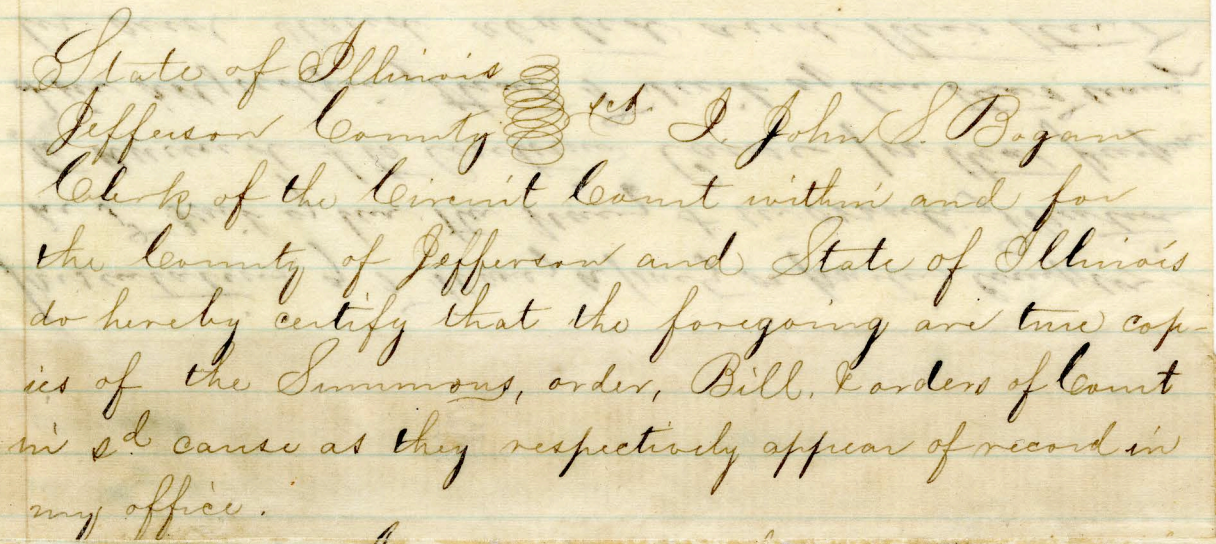 State of Illinois
Jefferson County sct. I, John S. Bogan
Clerk of the Circuit Court within and for
the County of Jefferson and State of Illinois
do hereby certify that the foregoing are true cop-
ies of the Summons, order, Bill, & orders of Court
in sd. cause as they respectively appear of record in
my office.